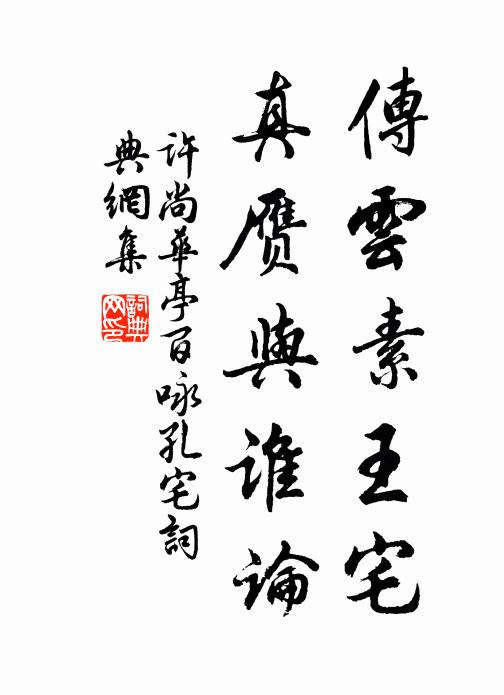 傳雲素王宅
真贋與誰論
許尚華亭百咏孔宅詞
典網集
詞典网印